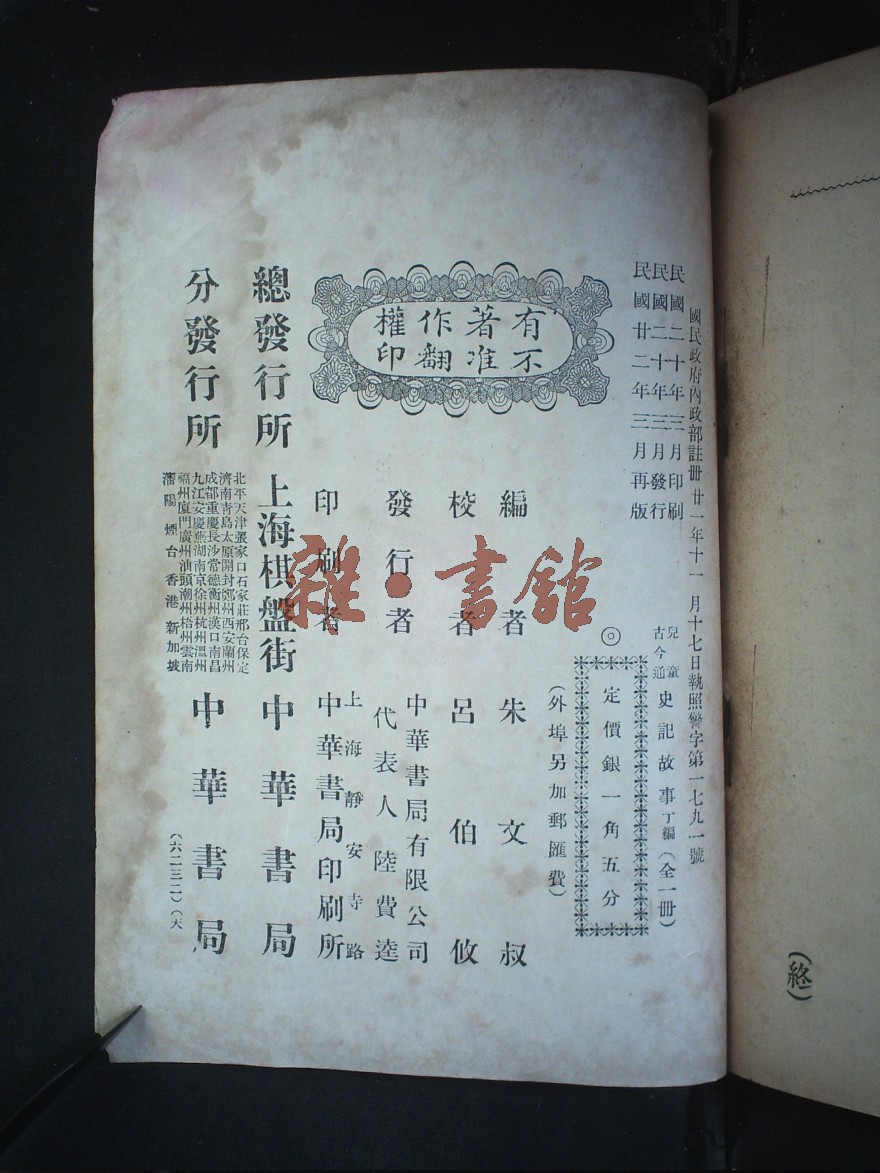 國民政府內政部註冊廿一年十一月十七日執照警字第一七九一號
民國二十年三月印刷
民國二十年三月發行
民國廿二年三月再版
兒童
古今通
史記故事丁編(全一冊)
◎
定價銀一角五分
(外埠另加郵匯費)
有著作權
不准翻印
編者朱文叔
校者呂伯攸
發行者
中華書局有限公司
代表人陸費逵
印刷者
上海靜安寺路
中華書局印刷所
總發行所
上海棋盤街
中華書局
分發行所
北平天津張家口石家莊邢台保定
濟南青島太原開封鄭州西安蘭州
成都重慶長沙常德衡州漢口南昌
九江安慶蕪湖南京徐州杭州溫州
福州廈門廣州汕頭潮州梧州雲南
瀋陽煙台香港新加坡
中華書局
(六二三二)(天
(終)
雜·書館